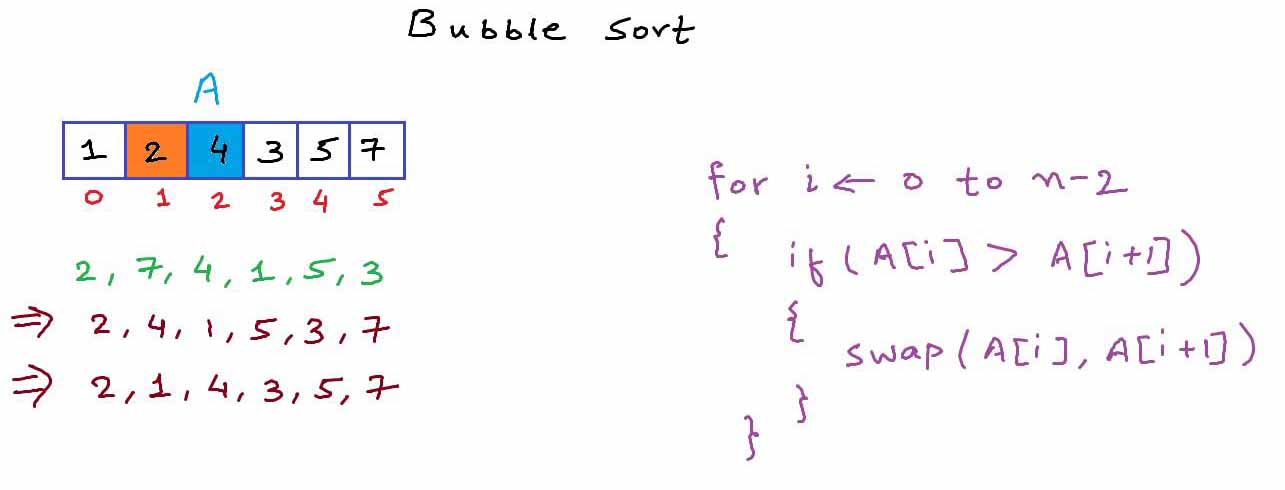 Bubble Sort
A
1 2 4 3 5 7
0 1 2 3 4 5
2, 7, 4, 1, 5, 3
⇒ 2, 4, 1, 5, 3, 7
⇒ 2, 1, 4, 3, 5, 7
for i ← 0 to n-2
{ if (A[i] > A[i+1])
{
swap (A[i], A[i+1])
}
}